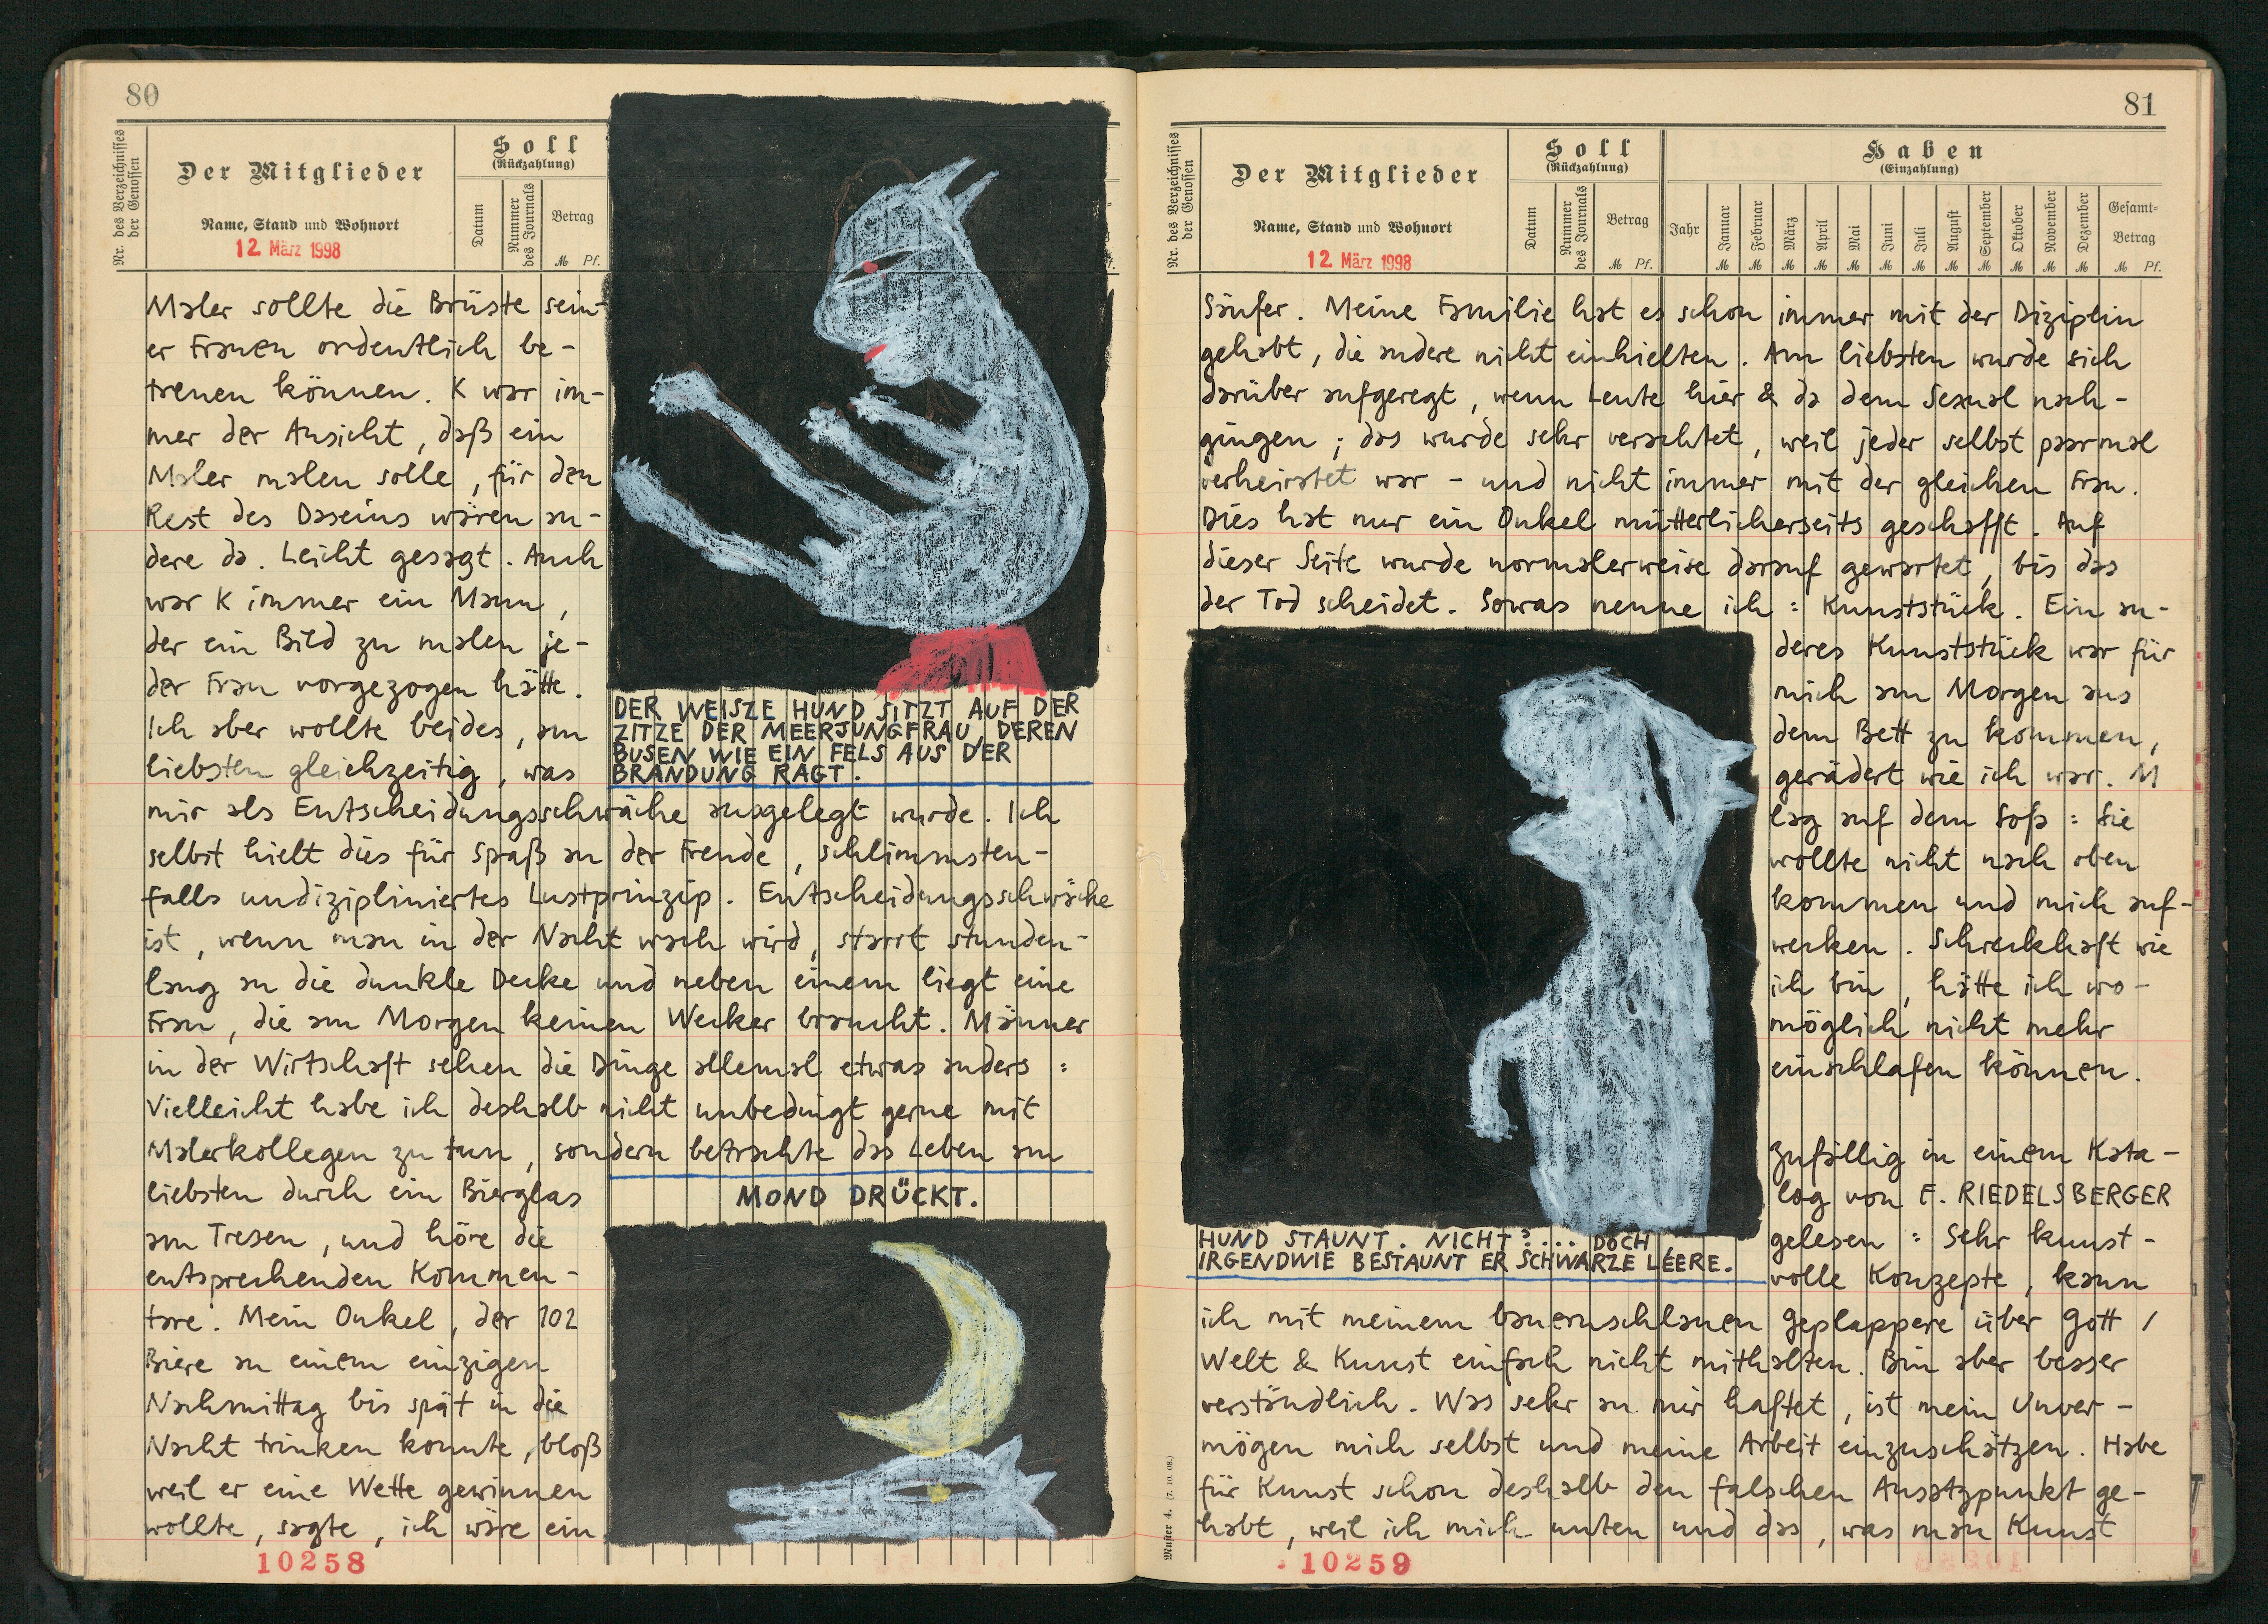 80
Nr. des Verzeichnisses
der Genossen
Der Mitglieder
Name, Stand und Wohnort
12. März 1998
Soll
(Rückzahlung)
Datum
Nummer
des Journals
Betrag
M Pf.
Maler sollte die Brüste sein-
er Frauen ordentlich be-
treuen können. K war im-
mer der Ansicht, daß ein
Maler malen solle, für den
Rest des Daseins wären an-
dere da. Leicht gesagt. Auch
war K immer ein Mann,
der ein Bild zu malen je-
der Frau vorgezogen hätte.
Ich aber wollte beides, am
liebsten gleichzeitig, was
DER WEISZE HUND SITZT AUF DER
ZITZE DER MEERJUNGFRAU, DEREN
BUSEN WIE EIN FELS AUS DER
BRANDUNG RAGT.
mir als Entscheidungsschwäche ausgelegt wurde. Ich
selbst hielt dies für Spaß an der Freude, schlimmsten-
falls undizipliniertes Lustprinzip. Entscheidungsschwäche
ist, wenn man in der Nacht wach wird, starrt stunden-
lang an die dunkle Decke und neben einem liegt eine
Frau, die am Morgen keinen Wecker braucht. Männer
in der Wirtschaft sehen die Dinge allemal etwas anders :
Vielleicht habe ich deshalb nicht unbedingt gerne mit
Malerkollegen zu tun, sondern betrachte das Leben am
liebsten durch ein Bierglas
am Tresen, und höre die
entsprechenden Kommen-
tare. Mein Onkel, der 102
Biere an einem einzigen
Nachmittag bis spät in die
Nacht trinken konnte, bloß
weil er eine Wette gewinnen
wollte, sagte, ich wäre ein
MOND DRÜCKT.
10258
81
Nr. des Verzeichnisses
der Genossen
Der Mitglieder
Name, Stand und Wohnort
12. März 1998
Soll
(Rückzahlung)
Datum
Nummer
des Journals
Betrag
M Pf.
Haben
(Einzahlung)
Jahr
Januar
Februar
März
April
Mai
Juni
Juli
August
September
Oktober
November
Dezember
Gesamt-
Betrag
M M M M M M M M M M M M M Pf.
Säufer. Meine Familie hat es schon immer mit der Diziplin
gehabt, die andere nicht einhielten. Am liebsten wurde sich
darüber aufgeregt, wenn Leute hier & da dem Sexual nach-
gingen; das wurde sehr verachtet, weil jeder selbst paarmal
verheiratet war - und nicht immer mit der gleichen Frau.
Dies hat nur ein Onkel mütterlicherseits geschafft. Auf
dieser Seite wurde normalerweise darauf gewartet, bis das
der Tod scheidet. Sowas nenne ich : Kunststück. Ein an-
deres Kunststück war für
mich am Morgen aus
dem Bett zu kommen,
gerädert wie ich war. M
lag auf dem Sofa : Sie
wollte nicht nach oben
kommen und mich auf-
wecken. Schreckhaft wie
ich bin, hätte ich wo-
möglich nicht mehr
einschlafen können.
Zufällig in einem Kata-
log von F. RIEDELSBERGER
gelesen : Sehr kunst-
volle Konzepte, kann
HUND STAUNT. NICHT?.... DOCH,
IRGENDWIE BESTAUNT ER SCHWARZE LEERE.
ich mit meinem bauernschlauen Geplappere über Gott /
Welt & Kunst einfach nicht mithalten. Bin aber besser
verständlich. Was sehr an mir haftet, ist mein Unver-
mögen mich selbst und meine Arbeit einzuschätzen. Habe
für Kunst schon deshalb den falschen Ansatzpunkt ge-
habt, weil ich mich unten und das, was man Kunst
10259
Muster 4. (7. 10. 08.)